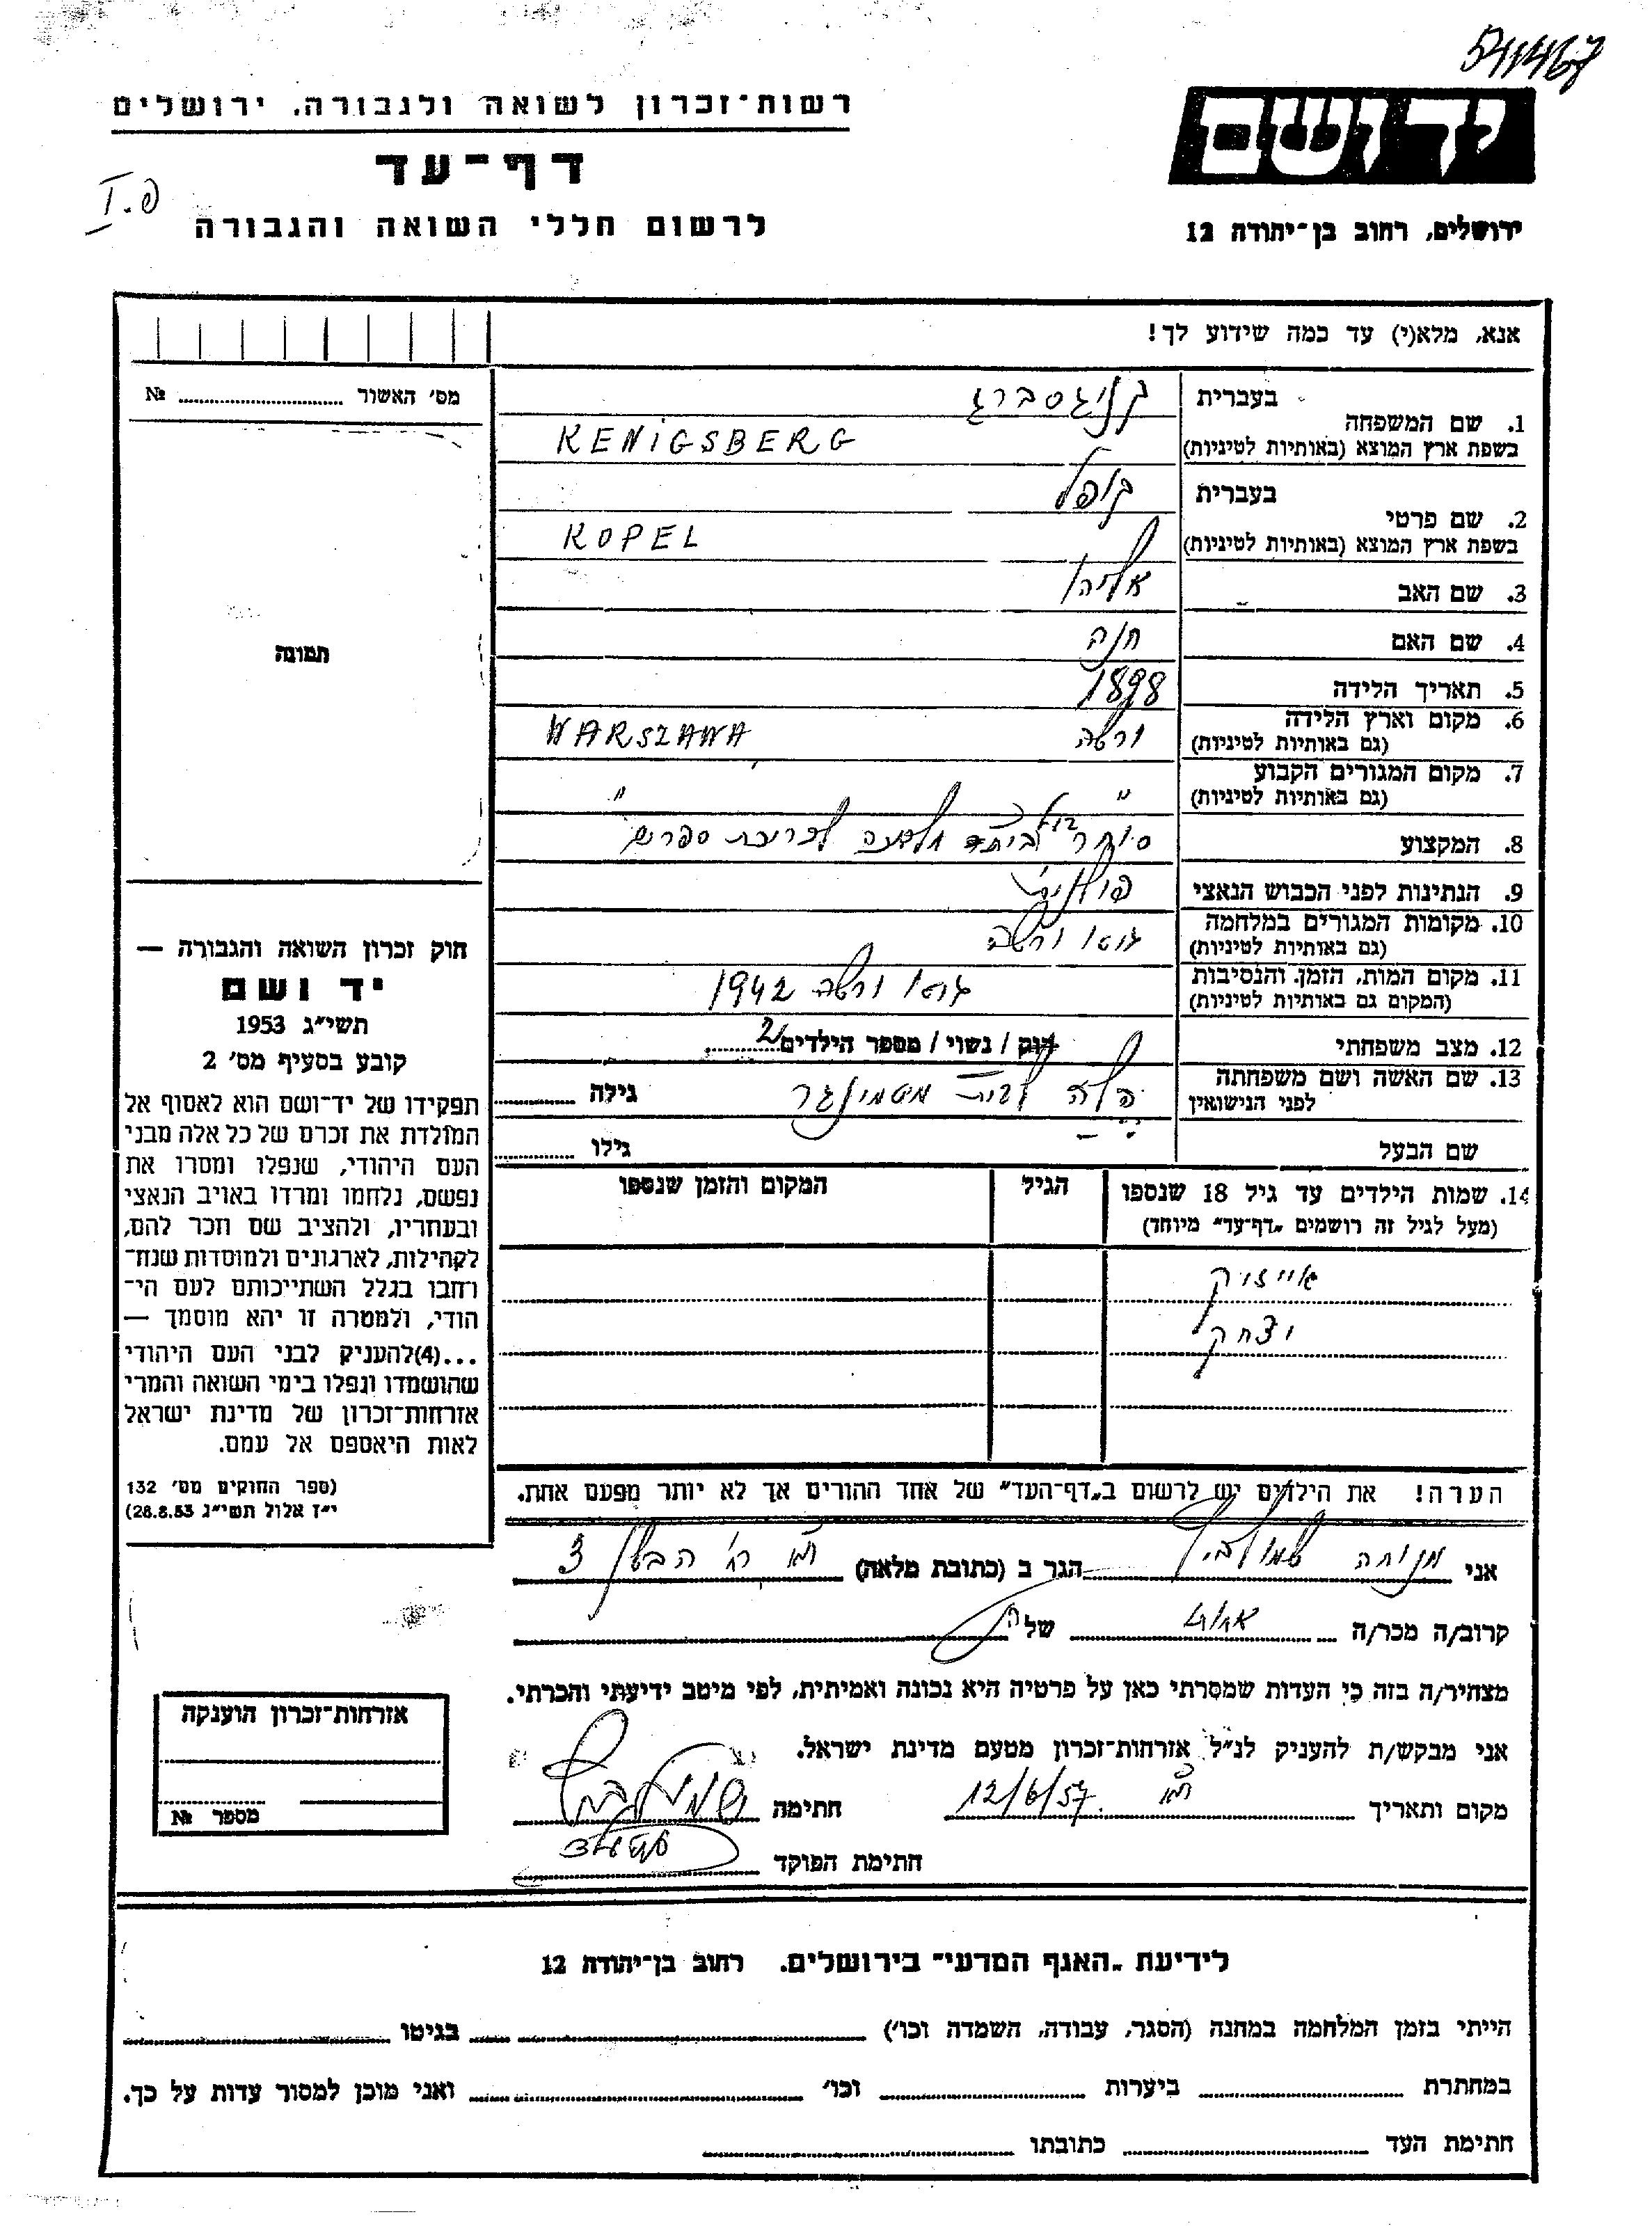 541467
ידושם
ירושלים, רחוב בן־יהודה 12
רשות־זכרון לשואה ולגבורה. ירושלים
דף־עד
לרשום חללי השואה והגבורה
I.פ
אנא, מלא(י) עד כמה שידוע לך!
מס׳ האשור № 
1. שם המשפחה בעברית קניגסברג
בשפת ארץ המוצא (באותיות לטיניות) KENIGSBERG
2. שם פרטי בעברית קופל
בשפת ארץ המוצא (באותיות לטיניות) KOPEL
3. שם האב אליהו
4. שם האם חנה
5. תאריך הלידה 1898
6. מקום וארץ הלידה ורשה WARSZAWA
(גם באותיות לטיניות)
7. מקום המגורים הקבוע " "
(גם באותיות לטיניות)
8. המקצוע סוחר לכריכת ספרים
9. הנתינות לפני הכבוש הנאצי פולנית
10. מקומות המגורים במלחמה גטו ורשה
(גם באותיות לטיניות)
11. מקום המות, הזמן והנסיבות גטו ורשה 1942
(המקום גם באותיות לטיניות)
12. מצב משפחתי רווק / נשוי / מספר הילדים 2
13. שם האשה ושם משפחתה לבית גילה
לפני הנישואין
שם הבעל גילו
14. שמות הילדים עד גיל 18 שנספו הגיל המקום והזמן שנספו
(מעל לגיל זה רושמים „דף־עד” מיוחד)
אייזיק
יצחק
הערה! את הילדים יש לרשום ב„דף־העד” של אחד ההורים אך לא יותר מפעם אחת.
אני מנוחה הגר ב (כתובת מלאה) 3
קרוב/ה מכר/ה אחות של
מצהיר/ה בזה כי העדות שמסרתי כאן על פרטיה היא נכונה ואמיתית, לפי מיטב ידיעתי והכרתי.
אני מבקש/ת להעניק לנ״ל אזרחות־זכרון מטעם מדינת ישראל.
מקום ותאריך 12/6/57 חתימה
חתימת הפוקד
תמונה
חוק זכרון השואה והגבורה —
יד ושם
תשי״ג 1953
קובע בסעיף מס׳ 2
תפקידו של יד־ושם הוא לאסוף אל
המולדת את זכרם של כל אלה מבני
העם היהודי, שנפלו ומסרו את
נפשם, נלחמו ומרדו באויב הנאצי
ובעוזריו, ולהציב שם וזכר להם,
לקהילות, לארגונים ולמוסדות שנח־
רחבו בגלל השתייכותם לעם הי־
הודי, ולמטרה זו יהא מוסמך —
...(4)להעניק לבני העם היהודי
שהושמדו ונפלו בימי השואה והמרי
אזרחות־זכרון של מדינת ישראל
לאות היאספם אל עמם.
(ספר החוקים מס׳ 132
י״ז אלול תשי״ג 28.8.53)
אזרחות־זכרון הוענקה
מספר №
לידיעת „האגף המדעי” בירושלים. רחוב בן־יהודה 12
הייתי בזמן המלחמה במחנה (הסגר, עבודה, השמדה וכו׳) בגיטו
במחתרת ביערות וכו׳ ואני מוכן למסור עדות על כך.
חתימת העד כתובתו